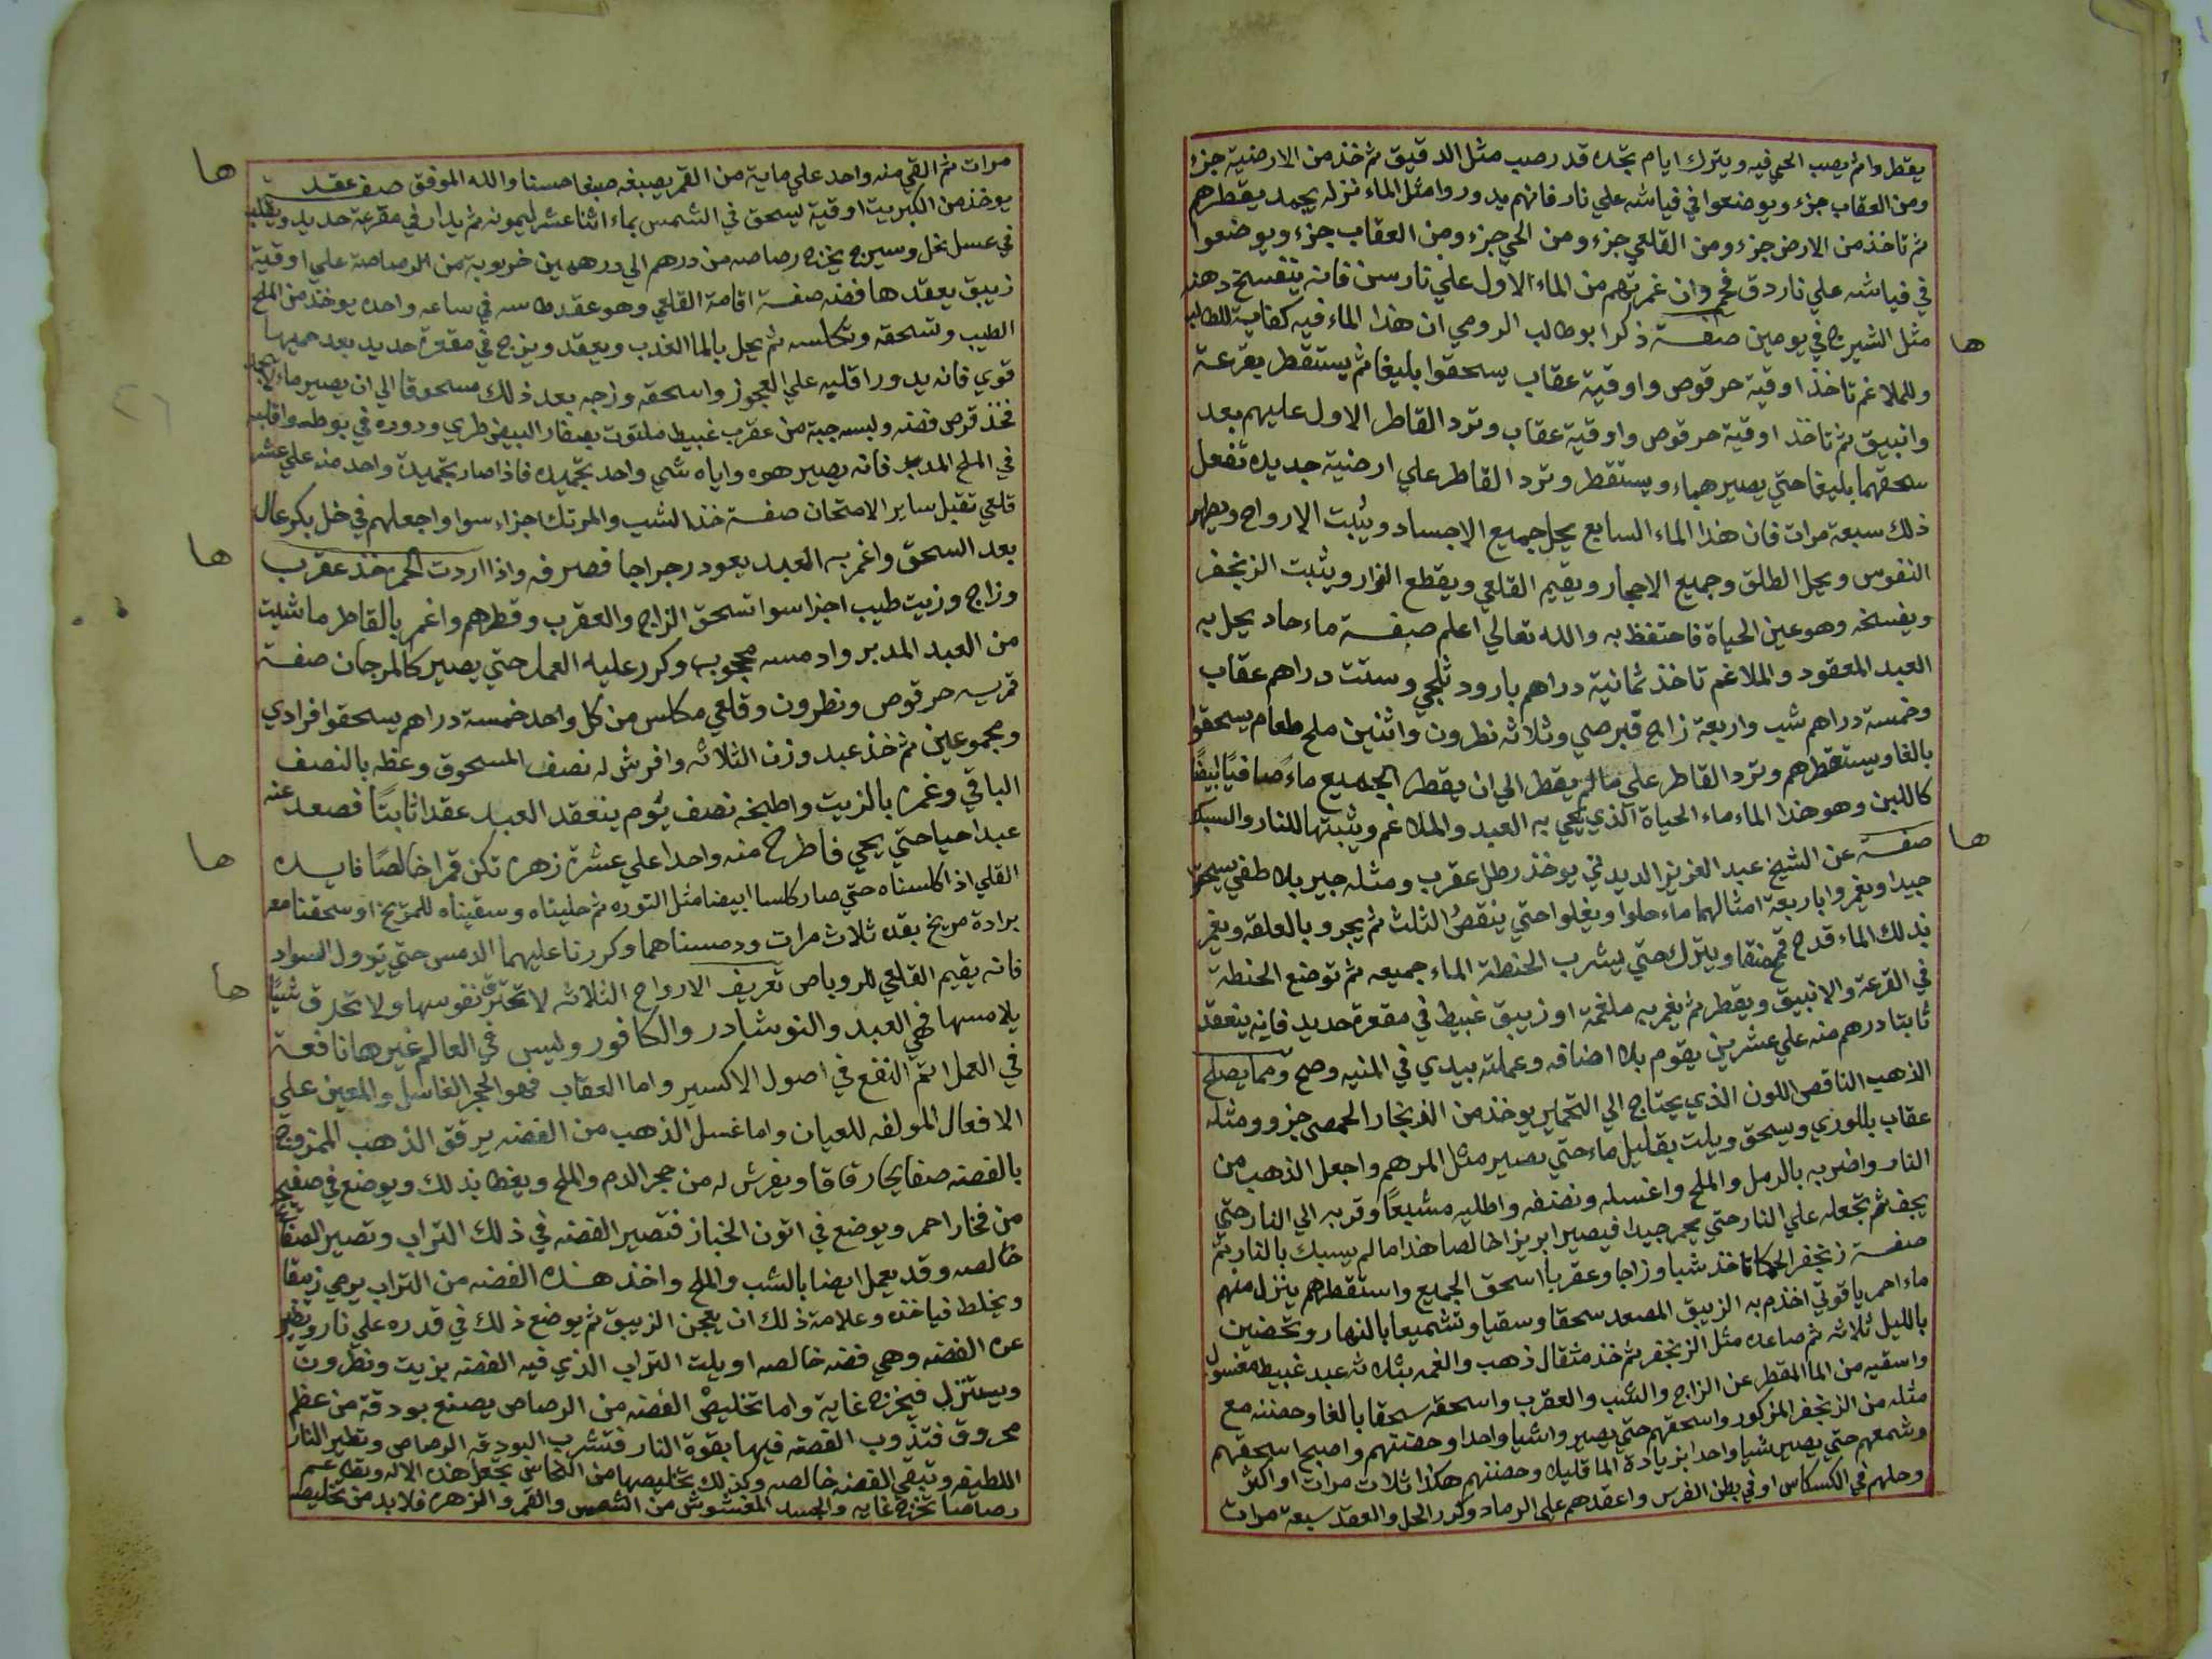 يقطر وانم يصب الحي فيه ويترك ايام تجده قد رصب مثل الدقيق ثم خذ من الارضية جزء
ومن العقاب جزء ويوضعوا في فياشه علي نار فانهم يدوروا مثل الماء نزله يجمد يقطرهم
ثم تاخذ من الارض جزء ومن القلعي جزء ومن الحي جزء ومن العقاب جزء ويوضعوا
في فياشه علي نار دق فحم وان غمرتهم من الماء الاول علي نار سن فانه ينفسخ دهنه
مثل الشيرج في يومين صفة ذكر ابو طالب الرومي ان هذا الماء فيه كفاية للطالب
ها
وللملاغم تاخذ اوقية حرقوص واوقية عقاب يسحقوا بليغا ثم يستقطر بقرعة
وانبيق ثم تاخذ اوقية حرقوص واوقية عقاب وترد القاطر الاول عليهم بعد
سحقهما بليغا حتي يصير هباء ويستقطر وترد القاطر علي ارضية جديده تفعل
ذلك سبعة مرات فان هذا الماء السابع يحل جميع الاجساد ويثبت الارواح ويطهر
النفوس ويحل الطلق وجميع الاحجار ويقيم القلعي ويقطع الفرار ويثبت الزنجفر
ويفسخه وهو عين الحياة فاحتفظ به والله تعالي اعلم صفة ماء حاد يحل به
العبد المعقود والملاغم تاخذ ثمانية دراهم بارود ثلجي وستت دراهم عقاب
وخمسة دراهم شب واربعة زاج قبرصي وثلاثه نطرون واثنين ملح طعام يسحقوا
بالغا ويستقطرهم وترد القاطر علي مالم يقطر الي ان يقطر الجميع ماءً صافيًا ابيضًا
كاللبن وهو هذا الماء ماء الحياة الذي يحي به العبد والملاغم ويثبتها للنار والسبك
ها
صفة عن الشيخ عبد العزيز الديديني يوخذ رطل عقرب ومثله جير بلا طفي يسحق
جيدا ويغمروا باربعة امثالهما ماء حلوا ويغلوا حتي ينقص الثلث ثم يجرو بالعلقه ويغمر
بذلك الماء قدح قمح منقا ويترك حتي يشرب الحنطة الماء جميعه ثم توضع الحنطة
في القرعة والانبيق ويقطر ثم يغمر به ملغمة او زيبق غبيط في مقعرة حديد فانه ينعقد
ثابتا درهم منه علي عشرين يقوم بلا اضافه وعملته بيدي في المنيه وصح ومما يصلح
الذهب الناقص اللون الذي يحتاج الي التحمير يوخذ من الزنجار الحمصي جزو ومثله
عقاب بللوري ويسحق ويلت بقليل ماء حتي يصير مثل المرهم واجعل الذهب من
النار واضربه بالرمل والملح واغسله ونضفه واطليه مشبعًا وقربه الي النار حتي
يجف ثم تجعله علي النار حتي يحمر جيدا فيصير ابريز اخالصا هذا مالم يسبك بالنار يتم
صفة زنجفر الحكما تاخذ شبا وزاجا وعقربا اسحق الجميع واستقطرهم ينزل منهم
ماء احمر ياقوتي اخذم به الزيبق المصعد سحقا وسقيا وتشميعا بالنهار وتحضين
بالليل ثلاثه ثم صاعده مثل الزنجفر ثم خذ مثقال ذهب والغمه بثلاثه عبد غبيط مغسول
واسقيه من الما المقطر عن الزاج والشب والعقرب واسحقه سحقا بالغا وحضنه مع
مثله من الزنجفر المذكور واسحقهم حتي يصيرواشيا واحدا وحضنهم واصبح اسحقهم
وشمعهم حتي يصير شيا واحدا بزيادة الما قليلا وحضنهم هكذا ثلاث مرات او اكثر
وحلهم في الكسكاس او في بطن الفرس واعقدهم علي الرماد وكرر الحل والعقد سبعة مرات
مرات ثم القي منه واحد علي ماية من القمر يصبغه صبغا حسنا والله الموفق صفة عقد
ها
يوخذ من الكبريت اوقية يسحق في الشمس بماء اثنا عشر ليمونه ثم يدار في مقرعة حديد ويقلب
في عسل نخل وسيرج يخرج رصاصه من درهم الي درهمين خروبة من الرصاصة علي اوقية
زيبق يعقدها فضه صفة اقامة القلعي وهو عقد طاسه في ساعه واحده يوخذ من الملح
الطيب وتسحقه وتكلسه ثم يحل بالما العذب ويعقد ويزج في مقعرة حديد بعد حميها
قوي فانه يدور اقليه علي العجوز واسحقه وزجه بعد ذلك مسحوقا الي ان يصير ماء لا يجمد
فخذ قرص فضه ولبسه جبة من عقرب غبيط ملتوت بصفار البيض طري ودوره في بوطه واقلبه
في الملح المدبر فانه يصير هوه واياه شي واحد تجمده فاذا صار بجمدة واحد منه علي عشره
قلعي تقبل ساير الامتحان صفة خذ الشب والمرتك اجزاء سوا واجعلهم في خل بكر عال
بعد السحق واغمر به العبد يعود رجراجا فصرفه واذا اردت الحمر خذ عقرب
ها
وزاج وزيت طيب اجزا سوا تسحق الزاج والعقرب وقطرهم واغمر بالقاطر ماشيت
من العبد المدبر وادمسه محجوبه وكرر عليه العمل حتي يصير كالمرجان صفة
قمريه حرقوص ونطرون وقلعي مكلس من كل واحد خمسة دراهم يسحقوا فرادي
ومجموعين ثم خذ عبد وزن الثلاثه وافرش له نصف المسحوق وغطه بالنصف
الباقي وغمره بالزيت واطبخه نصف يوم ينعقد العبد عقدا ثابتًا فصعد عنه
عبدا حيا حتي يحي فاطرح منه واحدا علي عشرة زهره تكن قمرا خالصًا فايده
ها
القلي اذا كلسناه حتي صار كلسا ابيضا مثل النوره ثم حليناه وسقيناه للمريخ او سحقنا معه
برادة مريخ بقده ثلاث مرات ودمسناهما وكررنا عليهما الدمس حتي يزول السواد
فانه يقيم القلعي للروباص تعريف الارواح الثلاثه لا تحترق نفوسها ولا تحرق شيًا
ها
يلامسها فهي العبد والنوشادر والكافور وليس في العالم غيرها نافعة
في العمل اتم النفع في اصول الاكسير واما العقاب فهو الحجر الغاسل والمعين علي
الافعال المولفه للعيان واما غسل الذهب من الفضه يرقق الذهب الممزوج
بالفضه صفايحا رقاقا ويفرش له من حجر الدم والملح ويغطا بذلك ويوضع في صفيح
من فخار احمر ويوضع في اتون الخباز فتصير الفضه في ذلك التراب وتصير الصفايح
خالصه وقد يعمل ايضا بالشب والملح واخذ هذه الفضه من التراب يرمي زيبقا
ويخلط فياخذه وعلامة ذلك ان يعجن الزيبق ثم يوضع ذلك في قدره علي نار ويطير
عن الفضه وهي فضه خالصه او يلت التراب الذي فيه الفضه بزيت ونطرون
ويستنزل فيخرج غاية واما تخليص الفضه من الرصاص يصنع بودقة من عظم
محروق فتذوب الفضه فيها بقوة النار فتشرب البودقه الرصاص وتطير النار
اللطيفه وتبقي الفضه خالصه وكذلك تخليصها من النحاس تجعل هذه الاله وتطعم
رصاصا تخرج غايه والجسد المغشوش من الشمس والقمر والزهره فلا بد من تخليصه